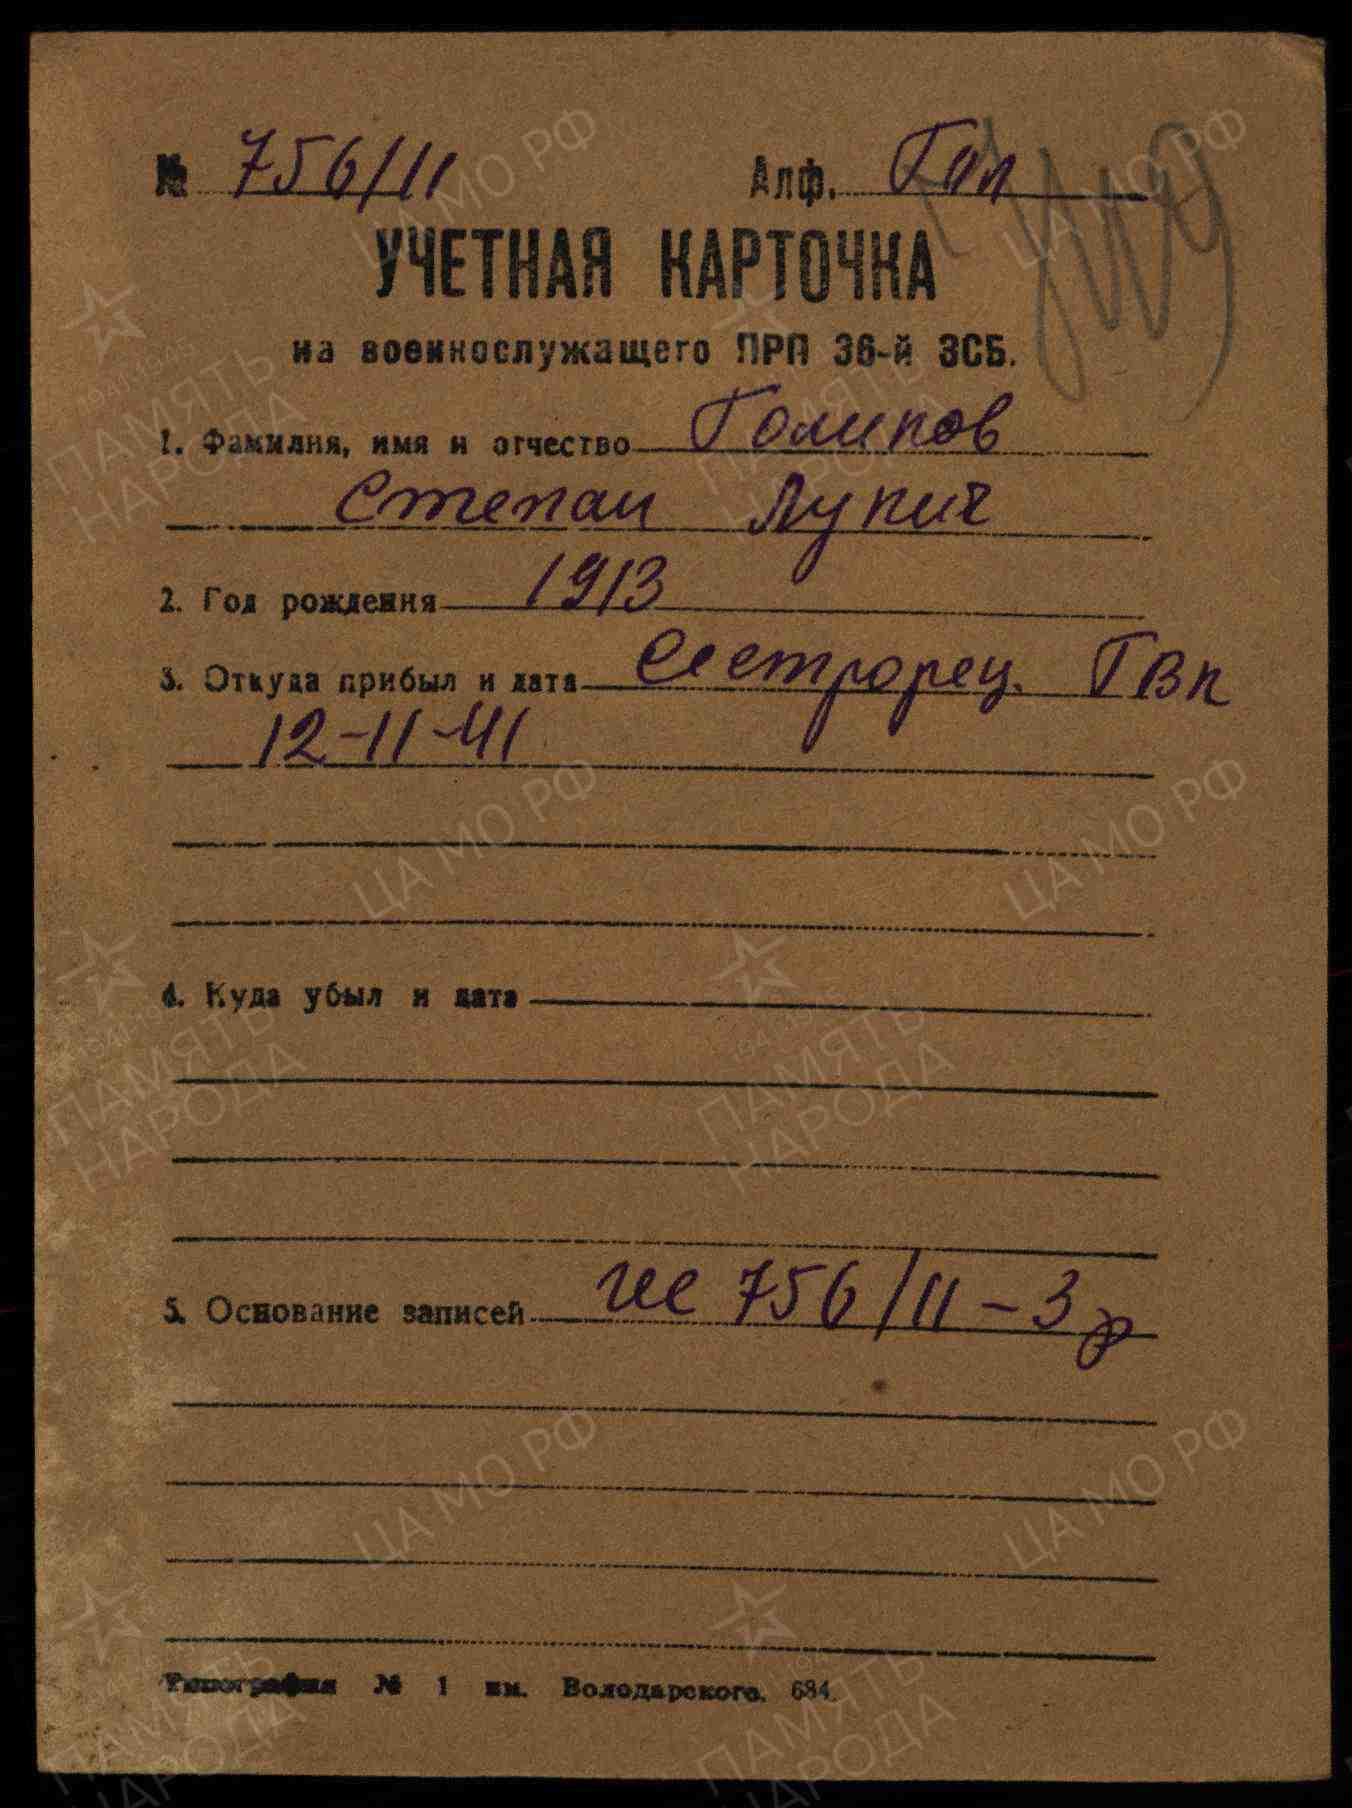 № 756/11 Алф. Гол
УЧЕТНАЯ КАРТОЧКА
на военнослужащего ПРП 36-й ЗСБ.
1. Фамилия, имя и отчество Голиков
Степан Лукич
2. Год рождения 1913
3. Откуда прибыл и дата Сестрорец. ГВК
12-11-41
4. Куда убыл и дата
5. Основание записей 756/11-3
Типография № 1 им. Володарского. 684.
ЦА МО РФ
ПАМЯТЬ НАРОДА